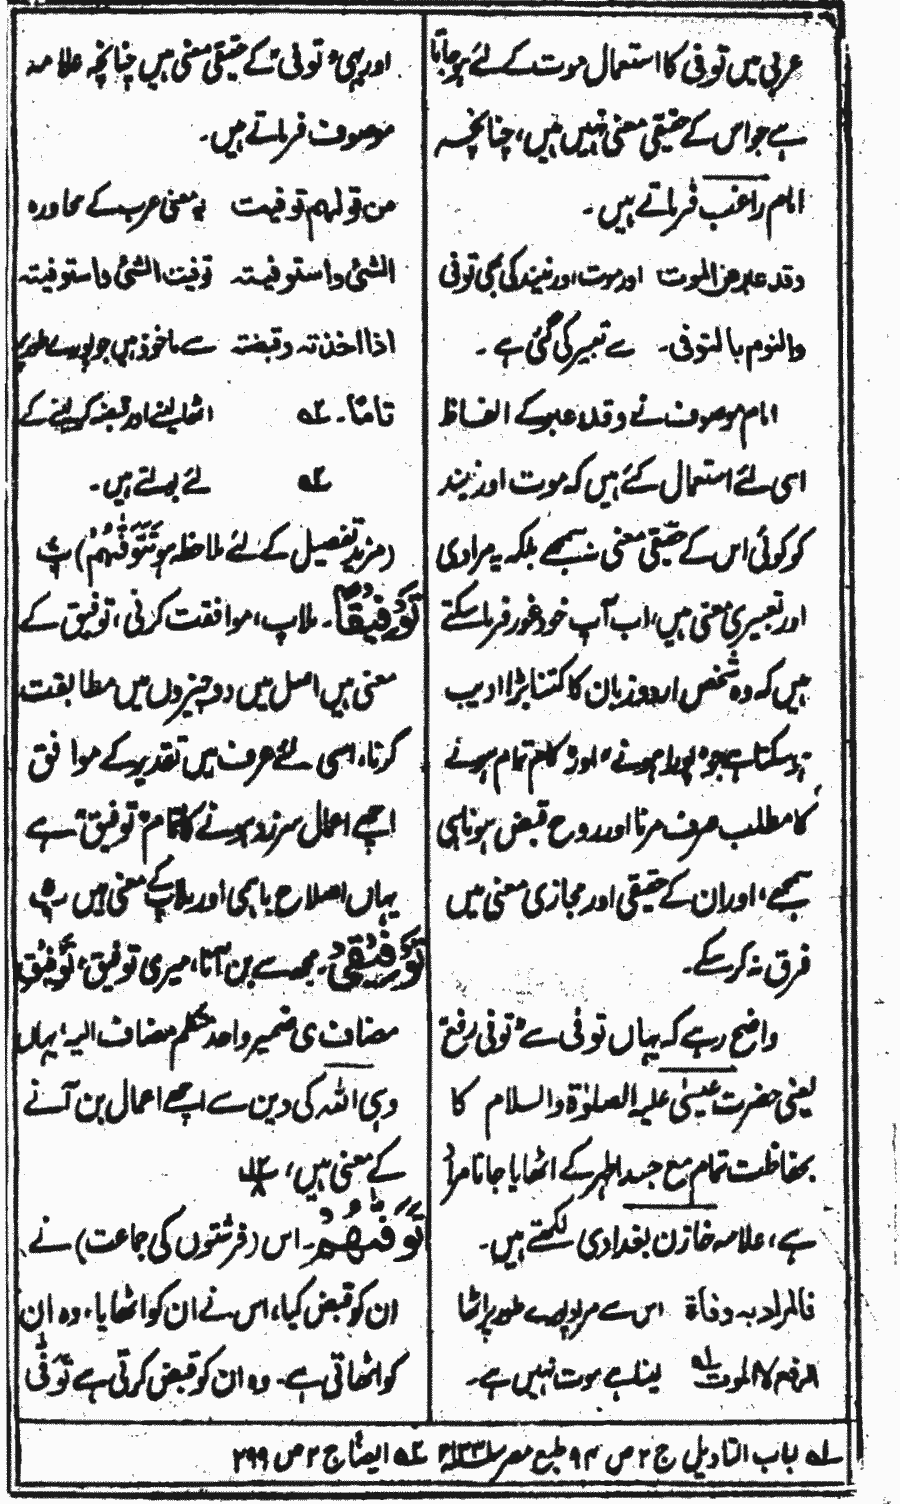 عربی میں توفی کا استعمال موت کے لئے ہو جاتا
ہے جو اس کے حقیقی معنی نہیں ہیں، چنانچہ
امام راغب فرماتے ہیں۔
وقد عبر عن الموت اور موت اور نیند کی بھی توفی
والنوم بالتوفی۔ سے تعبیر کی گئی ہے۔
امام موصوف نے وقد عبر کے الفاظ
اسی لئے استعمال کئے ہیں کہ موت اور نیند
کو کوئی اس کے حقیقی معنی نہ سمجھے بلکہ یہ مرادی
اور تعبیری معنی ہیں، اب آپ خود غور فرما سکتے
ہیں کہ وہ شخص اردو زبان کا کتنا بڑا ادیب
ہو سکتا ہے جو "پورا ہونے" اور "کام تمام ہونے"
کا مطلب صرف مرنا اور روح قبض ہونا ہی
سمجھے، اور ان کے حقیقی اور مجازی معنی میں
فرق نہ کر سکے۔
واضح رہے کہ یہاں توفی سے "توفی رفع"
یعنی حضرت عیسیٰ علیہ الصلوٰۃ والسلام کا
بحفاظت تمام مع جسد اطہر کے اٹھایا جانا مراد
ہے، علامہ خازن بغدادی لکھتے ہیں۔
فالمراد بہ وفاۃ اس سے مراد پورے طور پر اٹھا
الرفع لا الموت لہ لینا ہے موت نہیں ہے۔
اور یہی "توفی" کے حقیقی معنی ہیں چنانچہ علامہ
موصوف فرماتے ہیں۔
من قولہم توفیت یہ معنی عرب کے محاورہ
الشئ واستوفیتہ توفیت الشئ واستوفیتہ
اذا اخذتہ وقبضتہ سے ماخوذ ہیں جو پورے طور پر
تاماً۔ ۲ہ اٹھا لینے اور قبضہ کر لینے کے
۲ہ لئے بولتے ہیں۔
(مزید تفصیل کے لئے ملاحظہ ہو تَتَوَفّٰهُمْ) پ
تَوْفِیْقًا۔ ملاپ، موافقت کرنی، توفیق کے
معنی ہیں اصل میں دو چیزوں میں مطابقت
کرنا، اسی لئے عرف میں تقدیر کے موافق
اچھے اعمال سرزد ہونے کا نام "توفیق" ہے
یہاں اصلاح باہمی اور ملاپ کے معنی ہیں پ
تَوْفِیْقِیْ۔ مجھ سے بن آنا، میری توفیق، تَوْفِیْقِ
مضاف ی ضمیر واحد متکلم مضاف الیہ، یہاں
وہی اللہ کی دین سے اچھے اعمال بن آنے
کے معنی ہیں، پ۱۲
تَوَفّٰهُمْ۔ اس (فرشتوں کی جماعت) نے
ان کو قبض کیا، اس نے ان کو اٹھا یا، وہ ان
کو اٹھاتی ہے۔ وہ ان کو قبض کرتی ہے تَوَفّٰی
۱ہ لباب التاویل ج ۲ ص ۹۴ طبع مصر ۱۳۳۱ھ ۲ہ ایضاً ج ۲ ص ۲۹۹